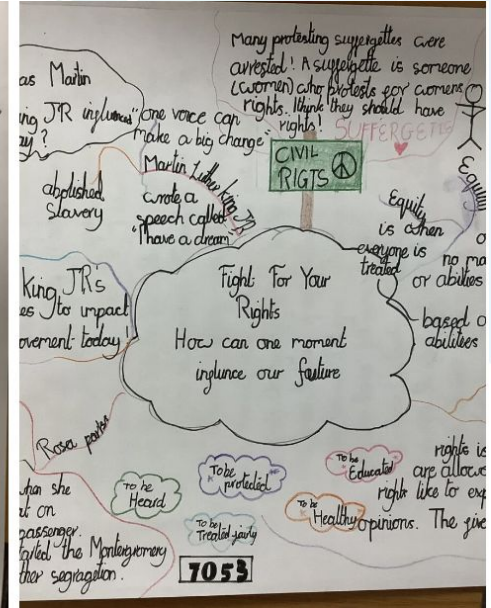 Many protesting suffergettes were
arrested! A suffergette is someone
(women) who protests for womens
rights. I think they should have
rights!
SUFFERGETTE
as Martin
ing JR influnced
ay?
"one voice can
make a big change"
CIVIL
RIGTS
Martin Luther king JR
wrote a
speech called
"I have a dream"
abolished
Slavery
Equity
is when
everyone is
treated
no ma
or abilties
based o
abilitees
king JRs
es to impact
ovement today!
Fight For Your
Rights
How can one moment
inflунce our fauture
Rosa parks
when she
at on
passenger.
arted the Montergromery
ther segragetion.
To be
Heard
To be
protected
To be
Treated fairly
To be
Educated
To be
Healthy
rights is
are allowe
right like to exp
opinions. The give
7053